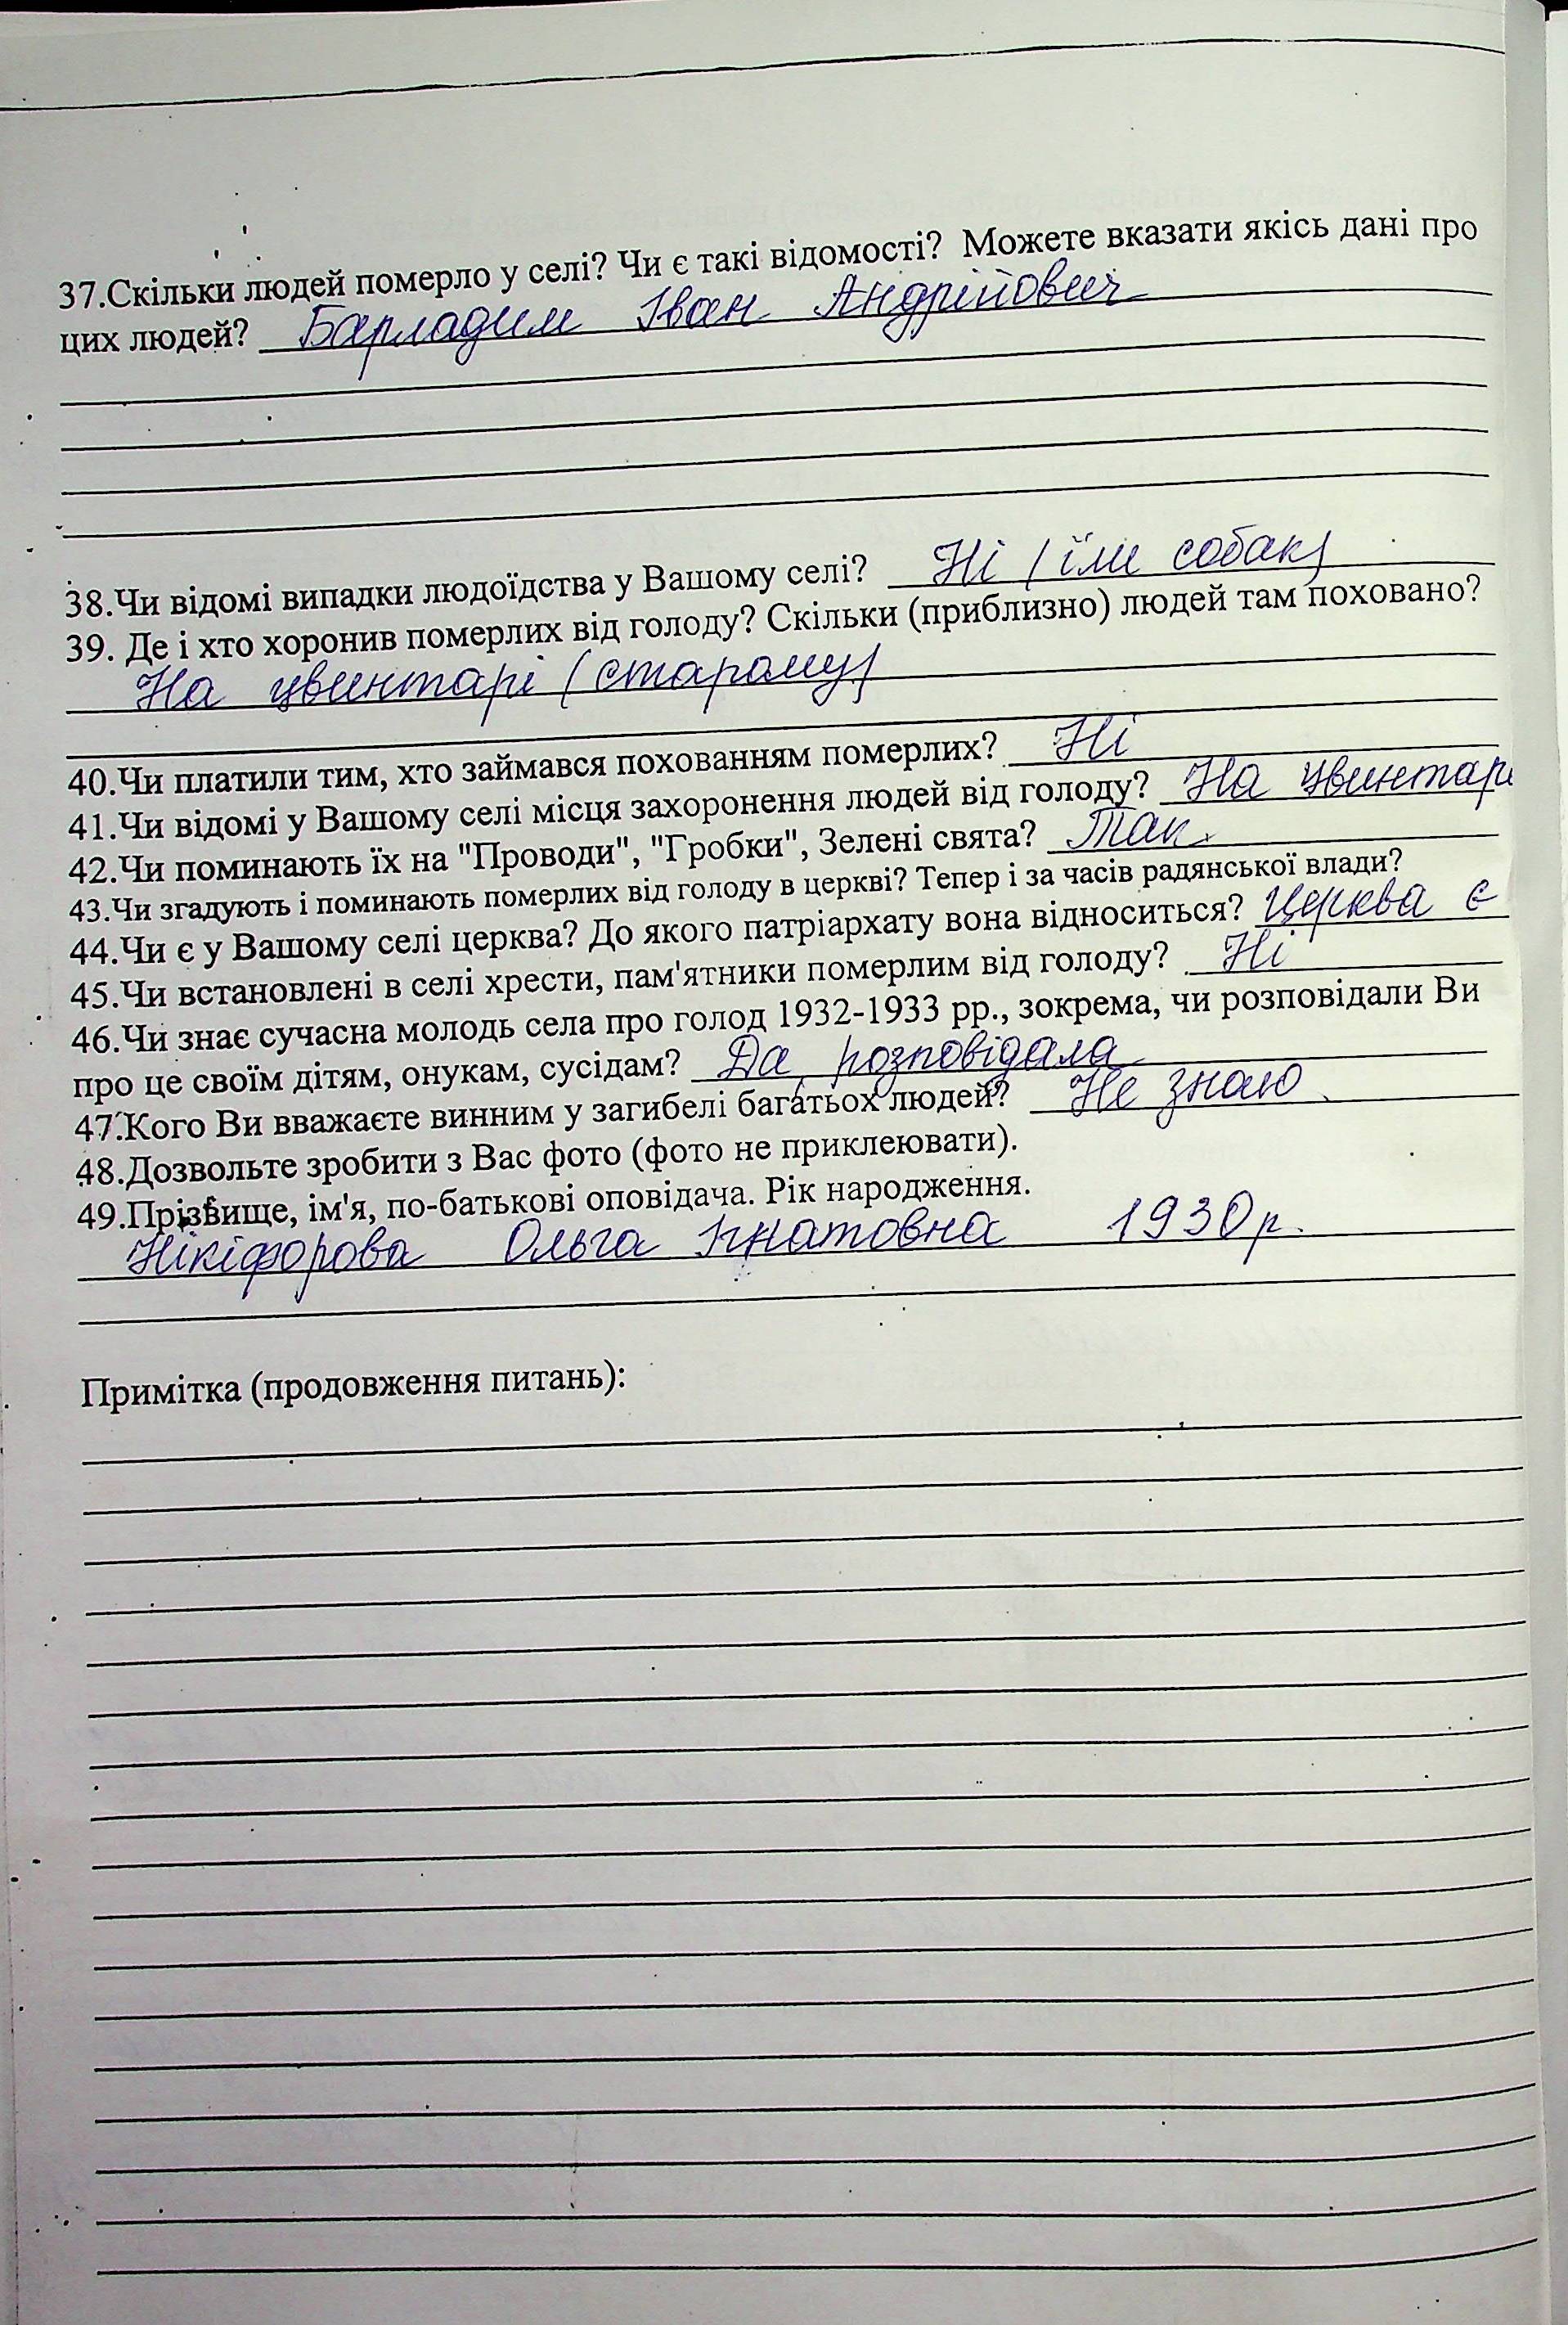 37.Скільки людей померло у селі? Чи є такі відомості? Можете вказати якісь дані про
цих людей? Барладим Іван Андрійович
38.Чи відомі випадки людоїдства у Вашому селі? Ні (їли собак)
39. Де і хто хоронив померлих від голоду? Скільки (приблизно) людей там поховано?
На цвинтарі (старому)
40.Чи платили тим, хто займався похованням померлих? Ні
41.Чи відомі у Вашому селі місця захоронення людей від голоду? На цвинтарі
42.Чи поминають їх на "Проводи", "Гробки", Зелені свята? Так.
43.Чи згадують і поминають померлих від голоду в церкві? Тепер і за часів радянської влади?
44.Чи є у Вашому селі церква? До якого патріархату вона відноситься? Церква є
45.Чи встановлені в селі хрести, пам'ятники померлим від голоду? Ні
46.Чи знає сучасна молодь села про голод 1932-1933 рр., зокрема, чи розповідали Ви
про це своїм дітям, онукам, сусідам? Да, розповідала
47.Кого Ви вважаєте винним у загибелі багатьох людей? Не знаю.
48.Дозвольте зробити з Вас фото (фото не приклеювати).
49.Прізвище, ім'я, по-батькові оповідача. Рік народження.
Нікіфорова Ольга Ігнатовна 1930р.
Примітка (продовження питань):